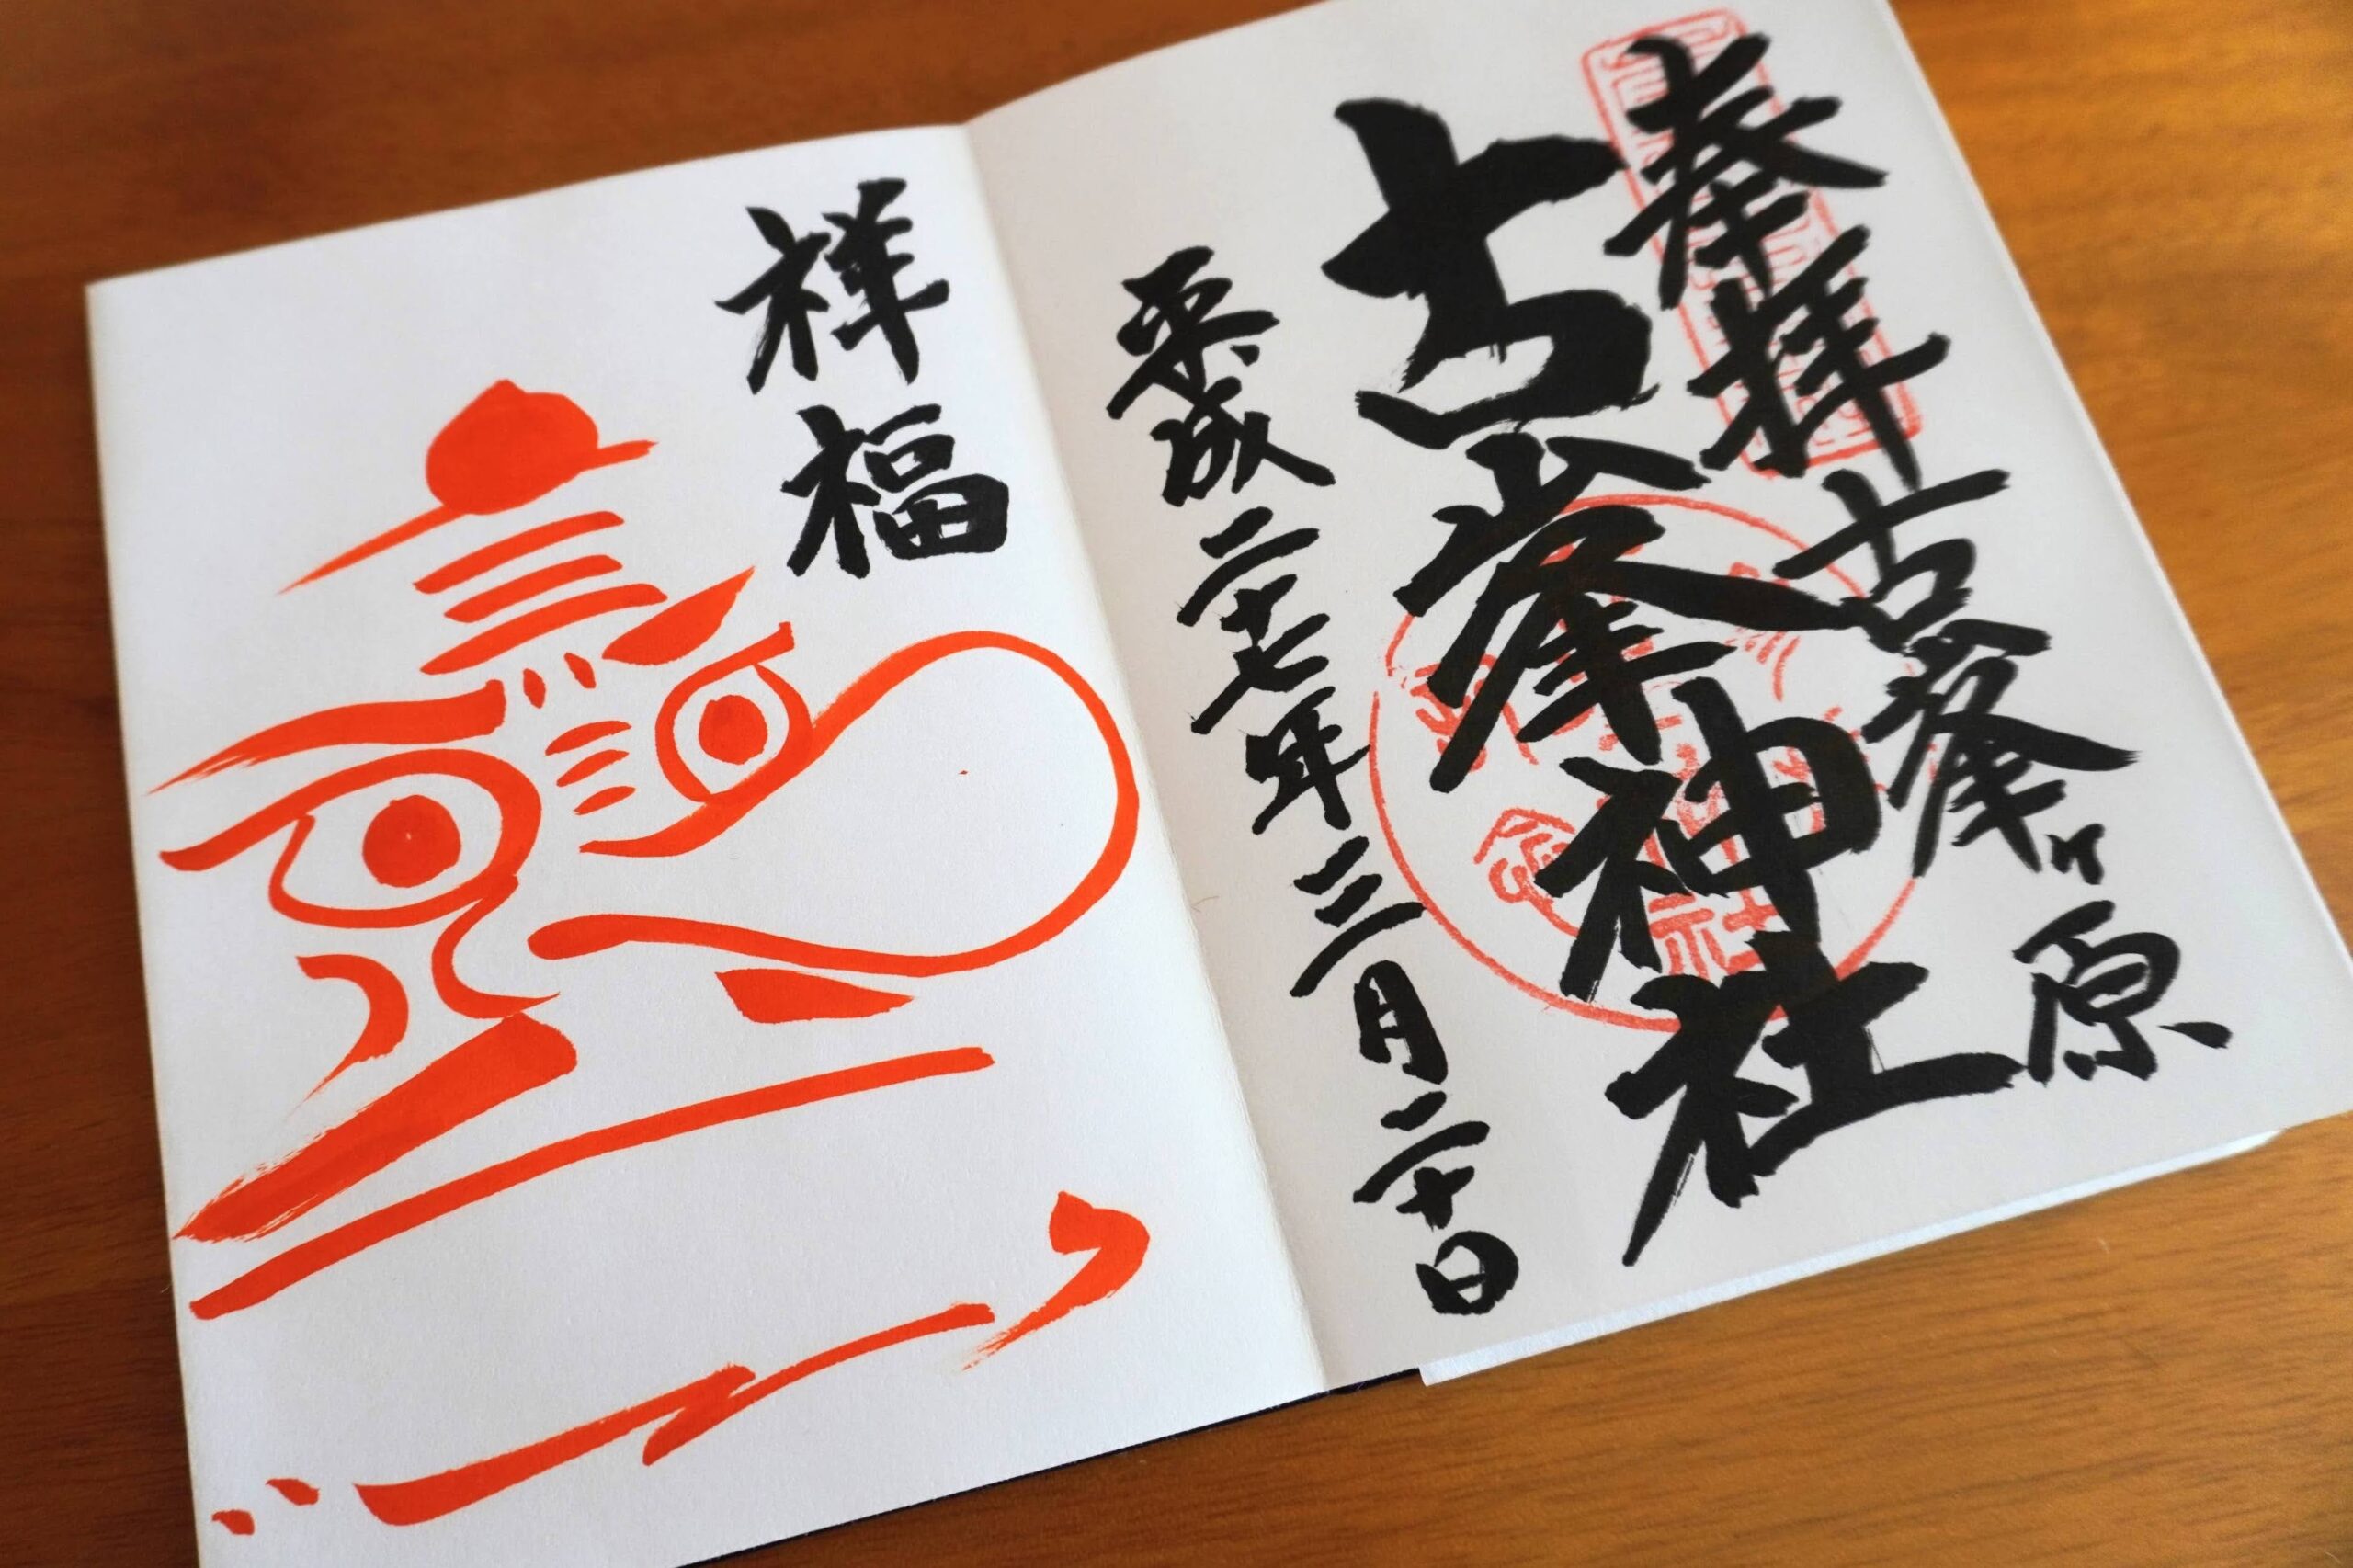 奉拝
古峯ヶ原
古峯神社
平成二十七年三月二十日
祥福